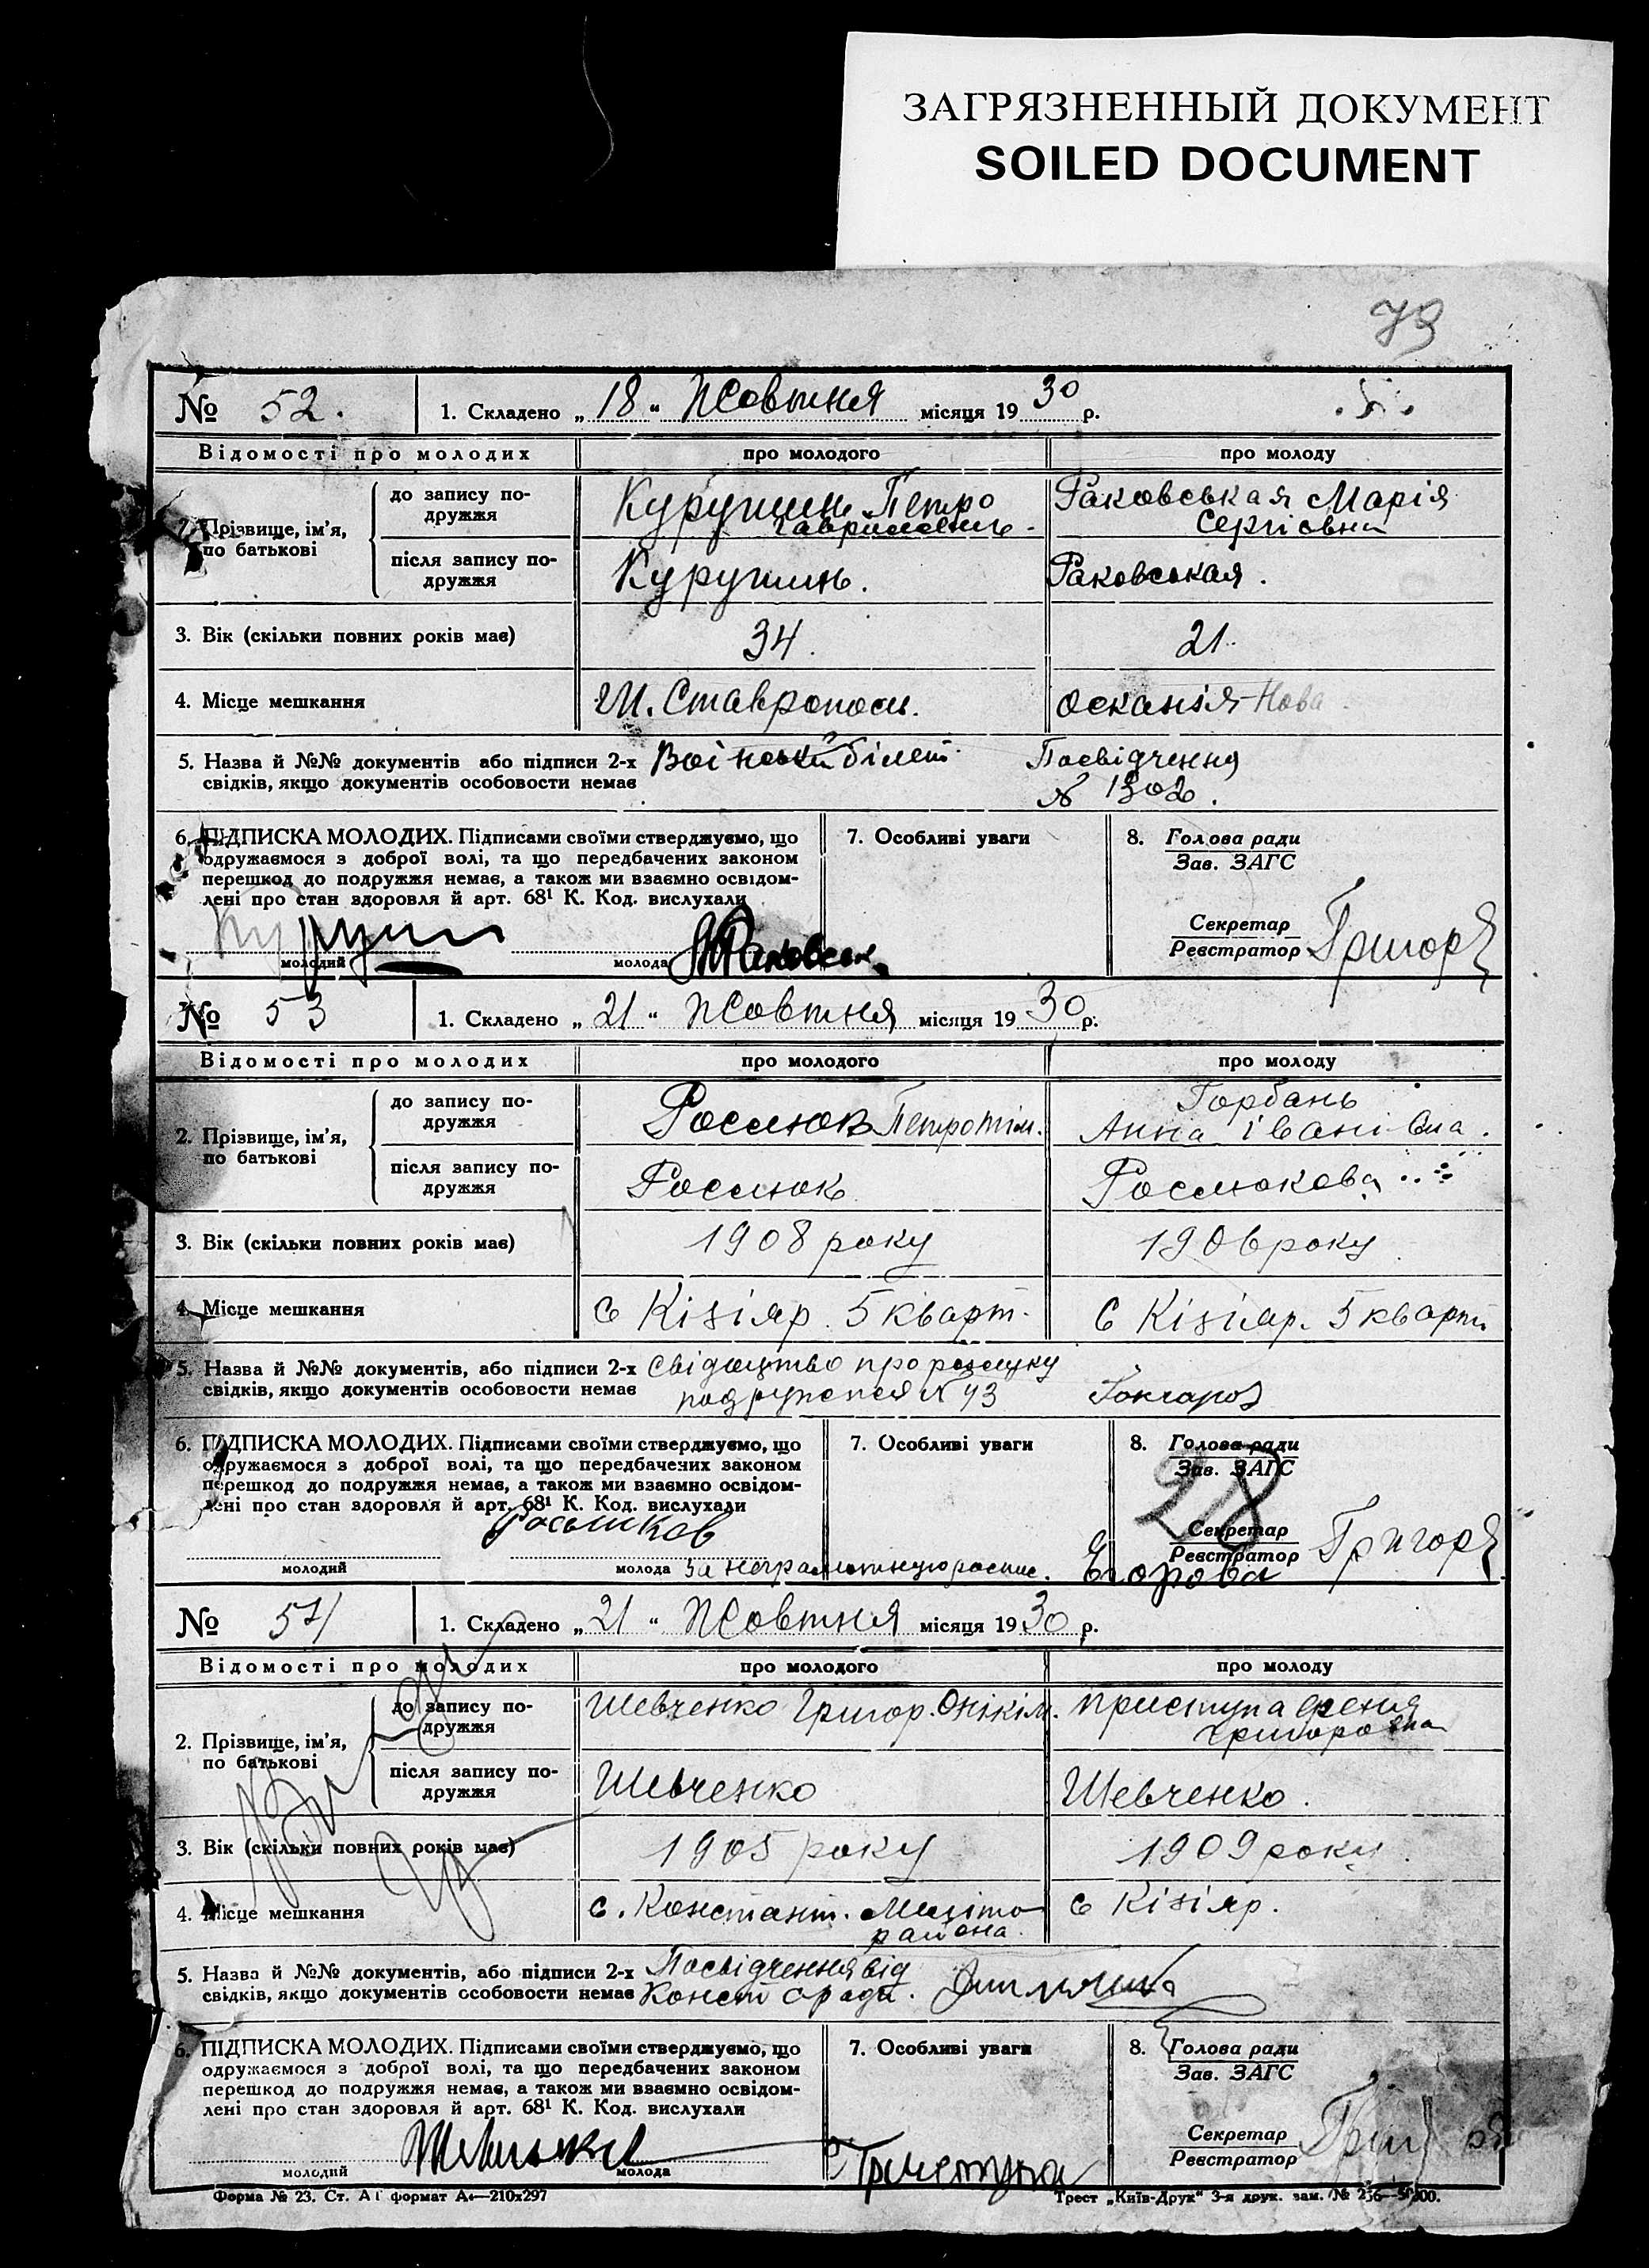 ЗАГРЯЗНЕННЫЙ ДОКУМЕНТ
SOILED DOCUMENT
79
№ 52. 1. Складено „18“ Жовтня місяця 1930 р.
Відомості про молодих про молодого про молоду
2. Прізвище, ім’я, по батькові
до запису подружжя Петро Раковськая Марія
Сергієвна
після запису подружжя Раковськая.
3. Вік (скільки повних років має) 34. 21.
4. Місце мешкання м. Ставрополь. Осканія-Нова
5. Назва й №№ документів або підписи 2-х Воінський білет. Посвідчення
свідків, якщо документів особовости немає № 1302.
6. ПІДПИСКА МОЛОДИХ. Підписами своїми стверджуємо, що 7. Особливі уваги 8. Голова ради
одружаємося з доброї волі, та що передбачених законом Зав. ЗАГС
перешкод до подружжя немає, а також ми взаємно освідом-
лені про стан здоровля й арт. 68¹ К. Код. вислухали
Секретар
Реєстратор
молодий молода
№ 53 1. Складено „21“ Жовтня місяця 1930 р.
Відомості про молодих про молодого про молоду
2. Прізвище, ім’я, по батькові
до запису подружжя Горбань
Анна Іванівна.
після запису подружжя
3. Вік (скільки повних років має) 1908 року 1906 року
4. Місце мешкання с Кізіяр. 5 кварт. с Кізіяр. 5 кварт
5. Назва й №№ документів, або підписи 2-х Свідоцтво про
свідків, якщо документів особовости немає № 43 Гончаров
6. ПІДПИСКА МОЛОДИХ. Підписами своїми стверджуємо, що 7. Особливі уваги 8. Голова ради
одружаємося з доброї волі, та що передбачених законом Зав. ЗАГС
перешкод до подружжя немає, а також ми взаємно освідом-
лені про стан здоровля й арт. 68¹ К. Код. вислухали
28
Секретар
Реєстратор
молодий молода за неграмотную роспис. Егорова
№ 54 1. Складено „21“ Жовтня місяця 1930 р.
Відомості про молодих про молодого про молоду
2. Прізвище, ім’я, по батькові
до запису подружжя Шевченко Григор. Онікім. Приступа
після запису подружжя Шевченко Шевченко.
3. Вік (скільки повних років має) 1905 року 1909 року.
4. Місце мешкання с. Констант. Меліто с Кізіяр.
района.
5. Назва й №№ документів, або підписи 2-х Посвідчення від
свідків, якщо документів особовости немає Конст с ради.
6. ПІДПИСКА МОЛОДИХ. Підписами своїми стверджуємо, що 7. Особливі уваги 8. Голова ради
одружаємося з доброї волі, та що передбачених законом Зав. ЗАГС
перешкод до подружжя немає, а також ми взаємно освідом-
лені про стан здоровля й арт. 68¹ К. Код. вислухали
Секретар
Реєстратор
молодий молода Приступа
Форма № 23. Ст. А1 формат А4—210x297 Трест „Київ-Друк“ 3-я друк. зам. №